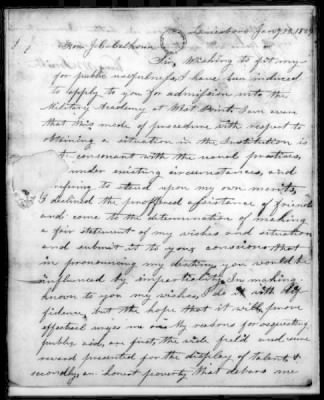 Lewisboro Jany 18
Hon. J. C. Calhoun
Sir, Wishing to fit my
for public usefulness, I have been induced
to apply to you for admission into the
Military Academy at West Point. I am aware
that this mode of procedure with respect to
obtaining a situation in the Institution is
consonant with the usual practices,
under existing circumstances, and
refusing to stand upon my own merits,
I declined the proffered assistance of friends
and come to the determination of making
a fair statement of my wishes and situation
and submit it to you, conscious that
in pronouncing my destiny you would be
influenced by impartiality. In making
known to you my wishes, I do it with dif
fidence, but the hope that it will prove
effectual urges me on. My reasons for requesting
public aid, are first, the wide field and
reward presented for the display of talents &
secondly, an honest poverty that debars me